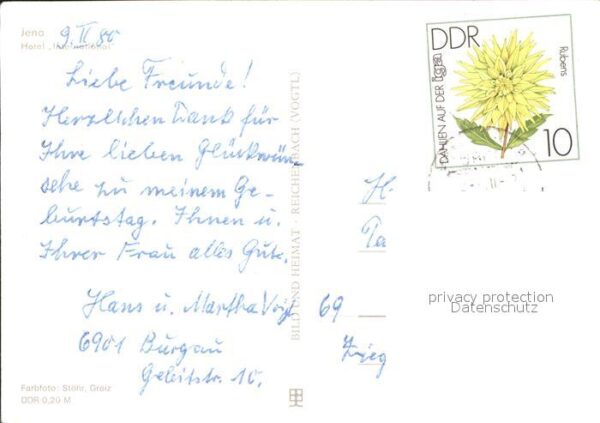 Jena
Hotel „International"
9.II 80
Liebe Freunde!
Herzlichen Dank für
Ihre lieben Glückwün-
sche zu meinem Ge-
burtstag. Ihnen u.
Ihrer Frau alles Gute.
Hans u. Martha Voigt
6901 Burgau
Geleitstr. 10.
Farbfoto: Stöhr, Greiz
DDR 0,20 M
BILD UND HEIMAT · REICHENBACH (VOGTL)
DDR
DAHLIEN AUF DER
Rubens
10
H
69
privacy protection
Datenschutz